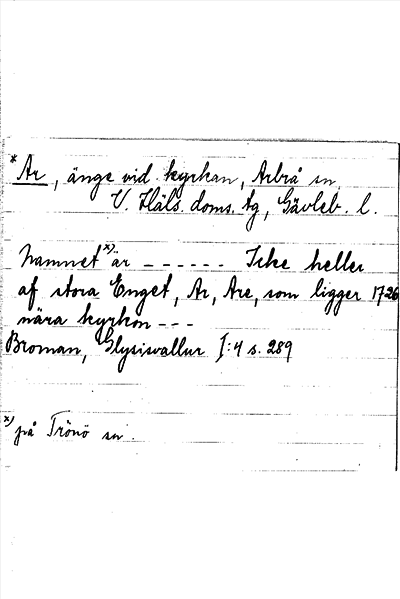 * Ar, änge vid kyrkan, Arbrå sn
V. Häls. doms. tg, Gävleb. l.
Namnet x) är ------ Icke heller
af stora Enget, Ar, Are, som ligger 1726
nära kyrkon ---
Broman, Glysisvallur I:4 s. 289
x) på Trönö sn.